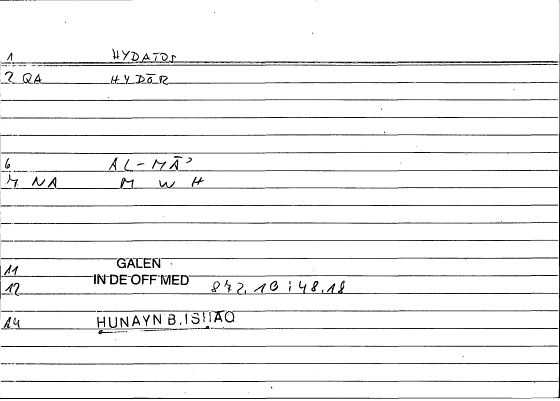 1 HYDATOS
2 QA HYDŌR
6 AL-MĀʾ
7 NA M W H
11 GALEN
12 IN DE OFF MED 872.10 : 48.18
14 HUNAYN B. ISHAQ